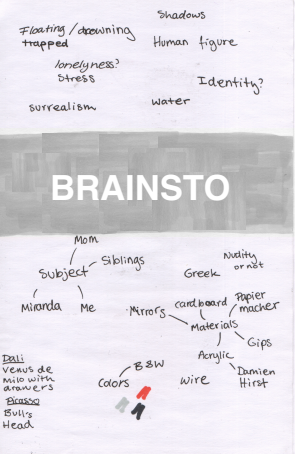 Shadows
Floating / drowning
trapped
Human figure
lonelyness?
Stress
Identity?
surrealism
water
BRAINSTO
Mom
Siblings
Subject
Miranda
Me
Nudity
or not
Greek
Mirrors
cardboard
Papier
macher
Materials
Gips
Acrylic
Damien
Hirst
wire
B&W
Colors
Dali
Venus de
milo with
drawers
Picasso
Bull's
Head